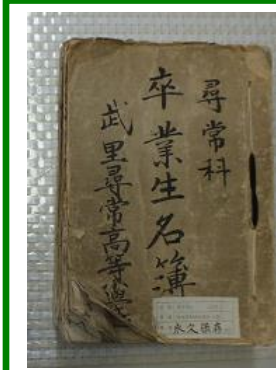 尋常科
卒業生名簿
武里尋常高等學校
永久保存